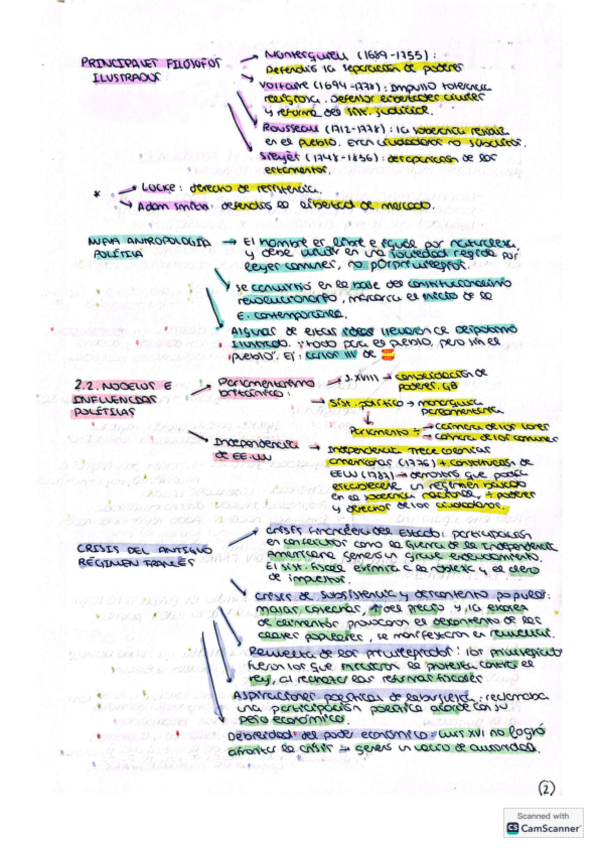 PRINCIPALES FILÓSOFOS ILUSTRADOS
→ Montesquieu (1689-1755):
Defendió la separación de poderes
→ Voltaire (1694-1778): Impulsó tolerancia
religiosa. Defensor libertades civiles
y reforma del sist. judicial.
→ Rousseau (1712-1778): la soberanía reside
en el pueblo. Eran ciudadanos no súbditos.
→ Sieyès (1748-1836): desaparición de los
estamentos.
* → Locke: derecho de resistencia.
→ Adam Smith: defendía la libertad de mercado.
NUEVA ANTROPOLOGÍA
POLÍTICA
→ El hombre es libre e igual por naturaleza
y debe vivir en una sociedad regida por
leyes comunes, no por privilegios.
→ Se convirtió en la base del constitucionalismo
revolucionario, marcará el inicio de la
E. contemporánea.
→ Algunas de estas ideas llevaron al despotismo
Ilustrado. "todo para el pueblo, pero sin el
pueblo". Ej: Carlos III de
2.2. MODELOS E
INFLUENCIAS
POLÍTICAS
→ Parlamentarismo
británico:
→ S.XVIII → consolidación de
poderes. GB
→ Sist. político → monarquía
parlamentaria
Parlamento → cámara de los lores
→ cámara de los comunes
→ Independencia
de EE.UU
→ Independencia Trece colonias
americanas (1776) + constitución de
EEUU (1787) → demostró que podía
establecerse un régimen basado
en la soberanía nacional, ÷ poderes
y derechos de los ciudadanos.
CRISIS DEL ANTIGUO
RÉGIMEN FRANCÉS
→ Crisis financiera del Estado: participación
en conflictos como la Guerra de la Independencia
Americana generó un grave endeudamiento.
El sist. fiscal eximía a la nobleza y el clero
de impuestos.
→ Crisis de subsistencia y descontento popular:
malas cosechas, ↑ del precio y la escasez
de alimentos provocaron el descontento de las
clases populares, se manifestaron en
→ Revuelta de los privilegiados: los privilegiados
fueron los que iniciaron la protesta contra el
rey, al rechazar las reformas fiscales
→ Aspiraciones políticas de la burguesía: reclamaba
una participación política acorde con su
peso económico.
→ Debilidad del poder económico: Luis XVI no logró
afrontar la crisis → generó un vacío de autoridad.
(2)
Scanned with
CS CamScanner